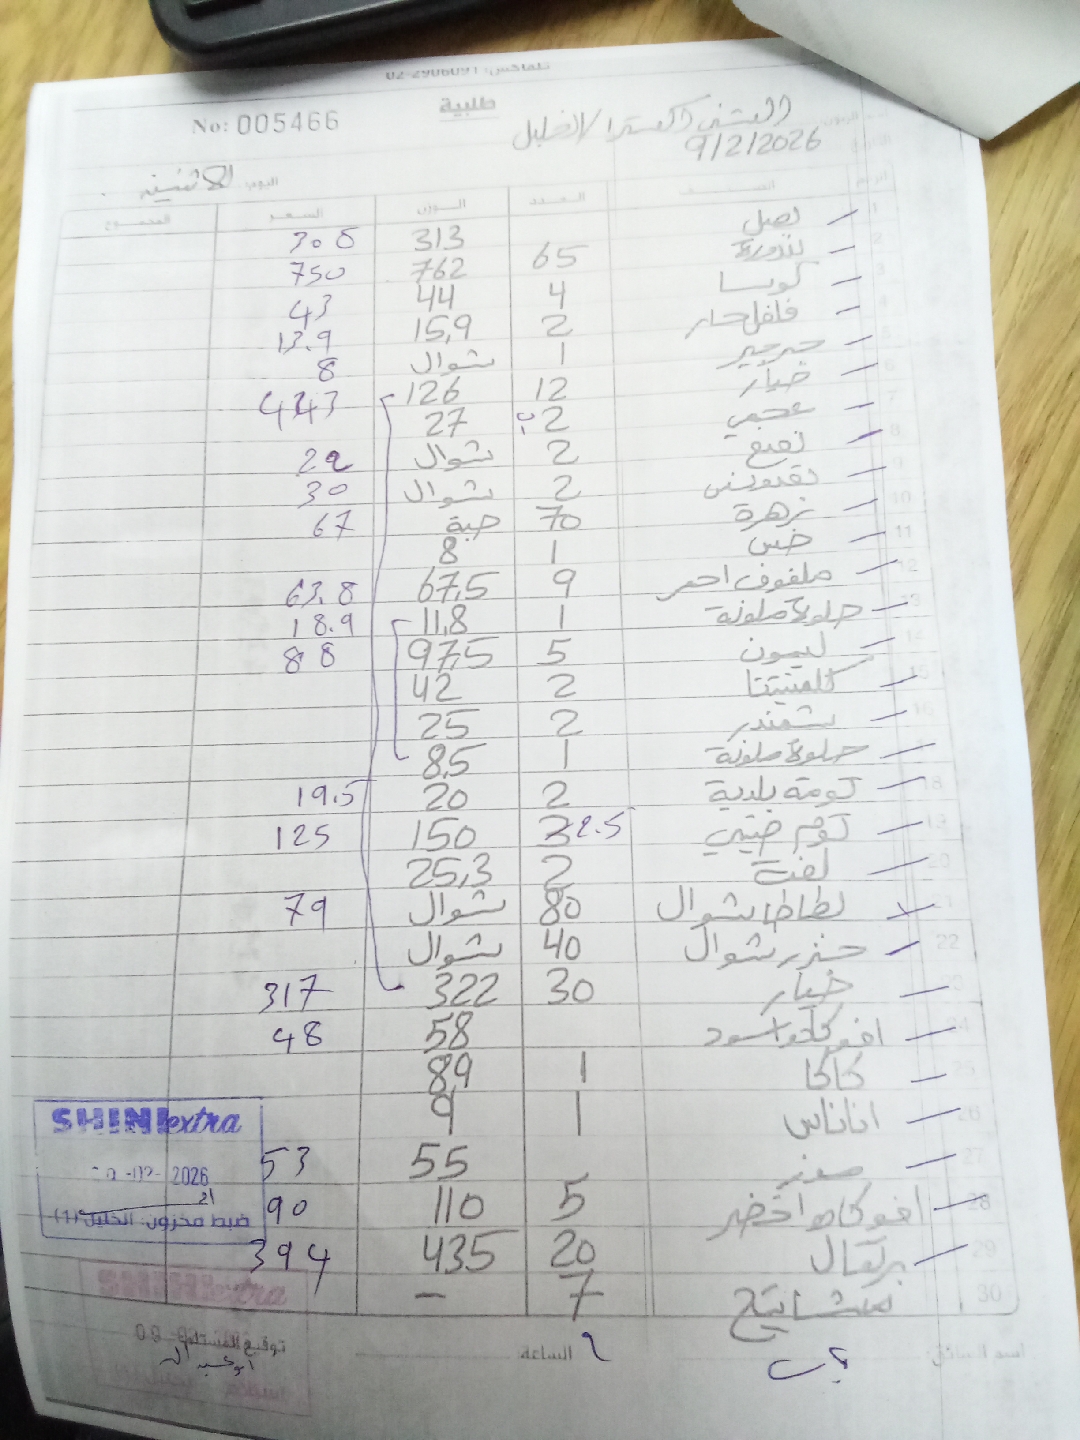 تلفاكس: 02-2906091
طلبية
No: 005466
الخليل
9/2/2026
اليوم: الاثنين
الرقم الصنف العدد الوزن السعر المجموع
1 بصل 313 308
2 بندورة 65 762 750
3 كوسا 4 44 43
4 فلفل حار 2 15,9 13.9
5 جرجير 1 شوال 8
6 خيار 12 126 443
7 عجمي 2 27
8 نعنع 2 شوال 29
9 بقدونس 2 شوال 30
10 زهرة 70 حبة 67
11 خس 1 8
12 ملفوف احمر 9 67,5 63.8
13 حلوة ملونة 1 11,8 18.9
14 ليمون 5 97,5 88
15 كلمنتينا 2 42
16 شمندر 2 25
حلوة ملونة 1 8,5
18 ثومة بلدية 2 20 19.5
19 ثوم صيني 2.5 150 125
20 لفت 2 25,3
21 بطاطا شوال 80 شوال 79
22 جزر شوال 40 شوال
23 خيار 30 322 317
24 افوكادو اسود 58 48
25 كاكا 1 89
26 اناناس 1 9
27 موز 55 53
28 افوكادو اخضر 5 110 90
29 برتقال 20 435 394
30 مشاتيح 7 -
SHINI extra
2026
ضبط مخزون: الخليل (1)
SHINI extra
اسم السائق:
الساعة
توقيع المستلم